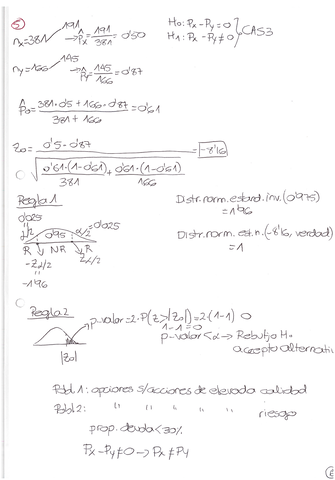 5
nx=381 191 → P̂x = 191/381 = 0'50
H0: Px - Py = 0
H1: Px - Py ≠ 0 } CAS3
ny=166 145 → P̂y = 145/166 = 0'87
P̂0 = 381·0'5 + 166·0'87 / 381 + 166 = 0'61
z0 = 0'5 - 0'87 / √ 0'61·(1-0'61) / 381 + 0'61·(1-0'61) / 166 = -8'16
Regla 1
Distr.norm.estand.inv.(0'975)
= 1'96
0'025
α/2 0'95 α/2 = 0'025
R NR R
-Zα/2 Zα/2
=
-1'96
Distr.norm.est.n.(-8'16, verdad)
= 1
Regla 2
p-valor = 2·P(z>|z0|) = 2·(1-1) 0
1-1=0
p-valor < α → Rebutjo H0
accepto alternati
|z0|
Pobl 1: opciones s/acciones de elevada calidad
Pobl 2: " " " " " riesgo
prop. deuda < 30%
Px - Py ≠ 0 → Px ≠ Py